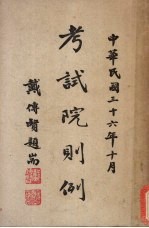 中華民國三十六年十月
考試院則例
戴傳賢題耑